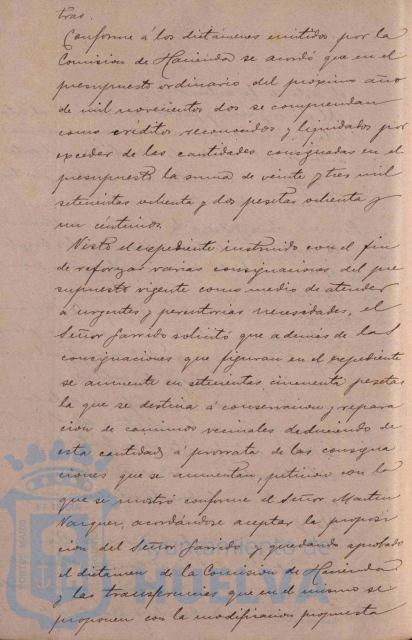 tras.
Conforme á los dictámenes emitidos por la
Comision de Hacienda se acordó que en el
presupuesto ordinario del próximo año
de mil novecientos dos se comprendan
como créditos reconocidos y liquidados por
exceder de las cantidades consignadas en el
presupuesto la suma de veinte y tres mil
setecientas ochenta y dos pesetas ochenta y
un céntimos.
Visto el expediente instruido con el fin
de reforzar varias consignaciones del pre
supuesto vigente como medio de atender
á urgentes y perentorias necesidades, el
Señor Garrido solicitó que además de las
consignaciones que figuran en el expediente
se aumente en setecientas cincuenta pesetas
la que se destina á conservacion y repara
cion de caminos vecinales deduciendo de
esta cantidad á prorrata de las consigna
ciones que se aumentan, peticion con la
que se mostró conforme el Señor Martin
Vazquez, acordándose aceptar la proposi
cion del Señor Garrido y quedando aprobado
el dictámen de la Comision de Hacienda
y las transferencias que en el mismo se
proponen con la modificacion propuesta